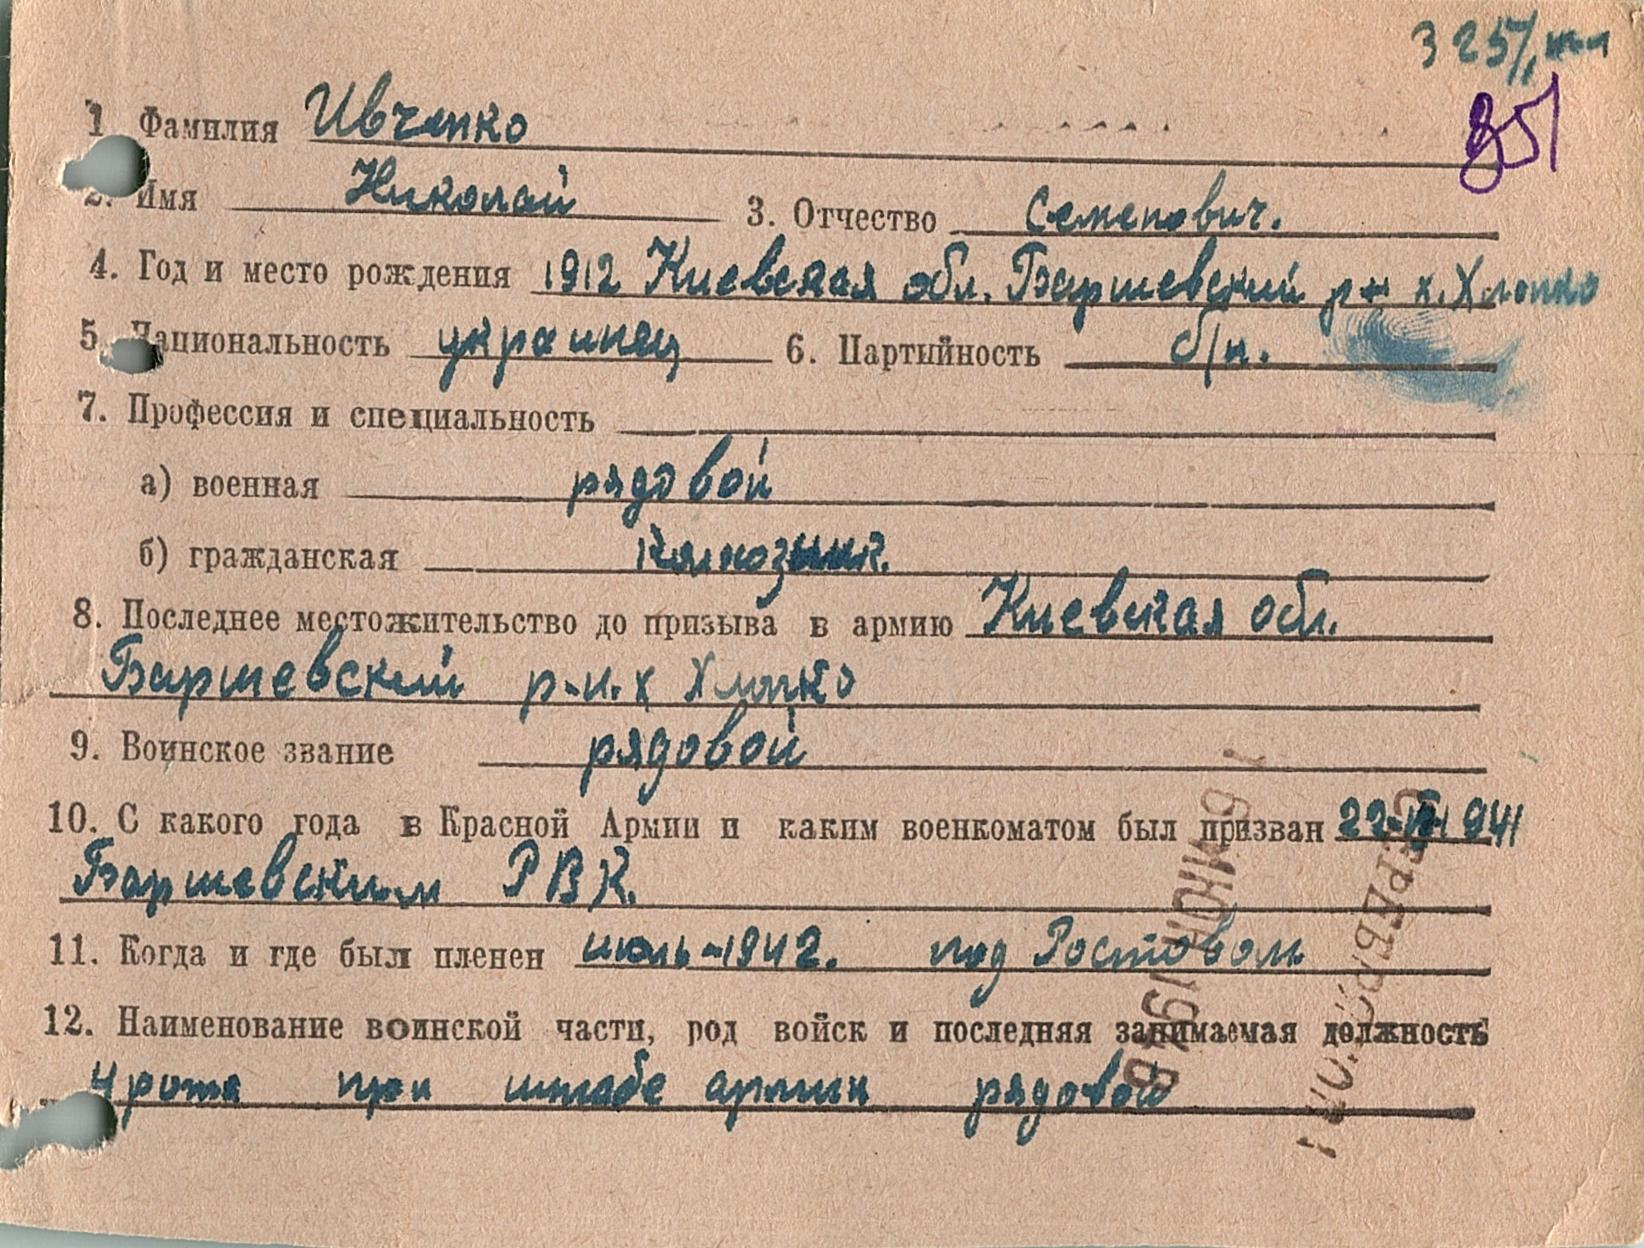 3257/
351
1 Фамилия Ивченко
2. Имя Николай 3. Отчество Семенович.
4. Год и место рождения 1912 Киевская обл. Барышевский р-н х. Хлопко
5. Национальность украинец 6. Партийность б/п.
7. Профессия и специальность
а) военная рядовой
б) гражданская колхозник.
8. Последнее местожительство до призыва в армию Киевская обл.
Барышевский р-н. х Хлопко
9. Воинское звание рядовой
10. С какого года в Красной Армии и каким военкоматом был призван 1941
Барышевским РВК.
11. Когда и где был пленен июль-1942. под Ростовом
12. Наименование воинской части, род войск и последняя занимаемая должность
4 рота при штабе армии рядовой
ИЮНЯ 1946